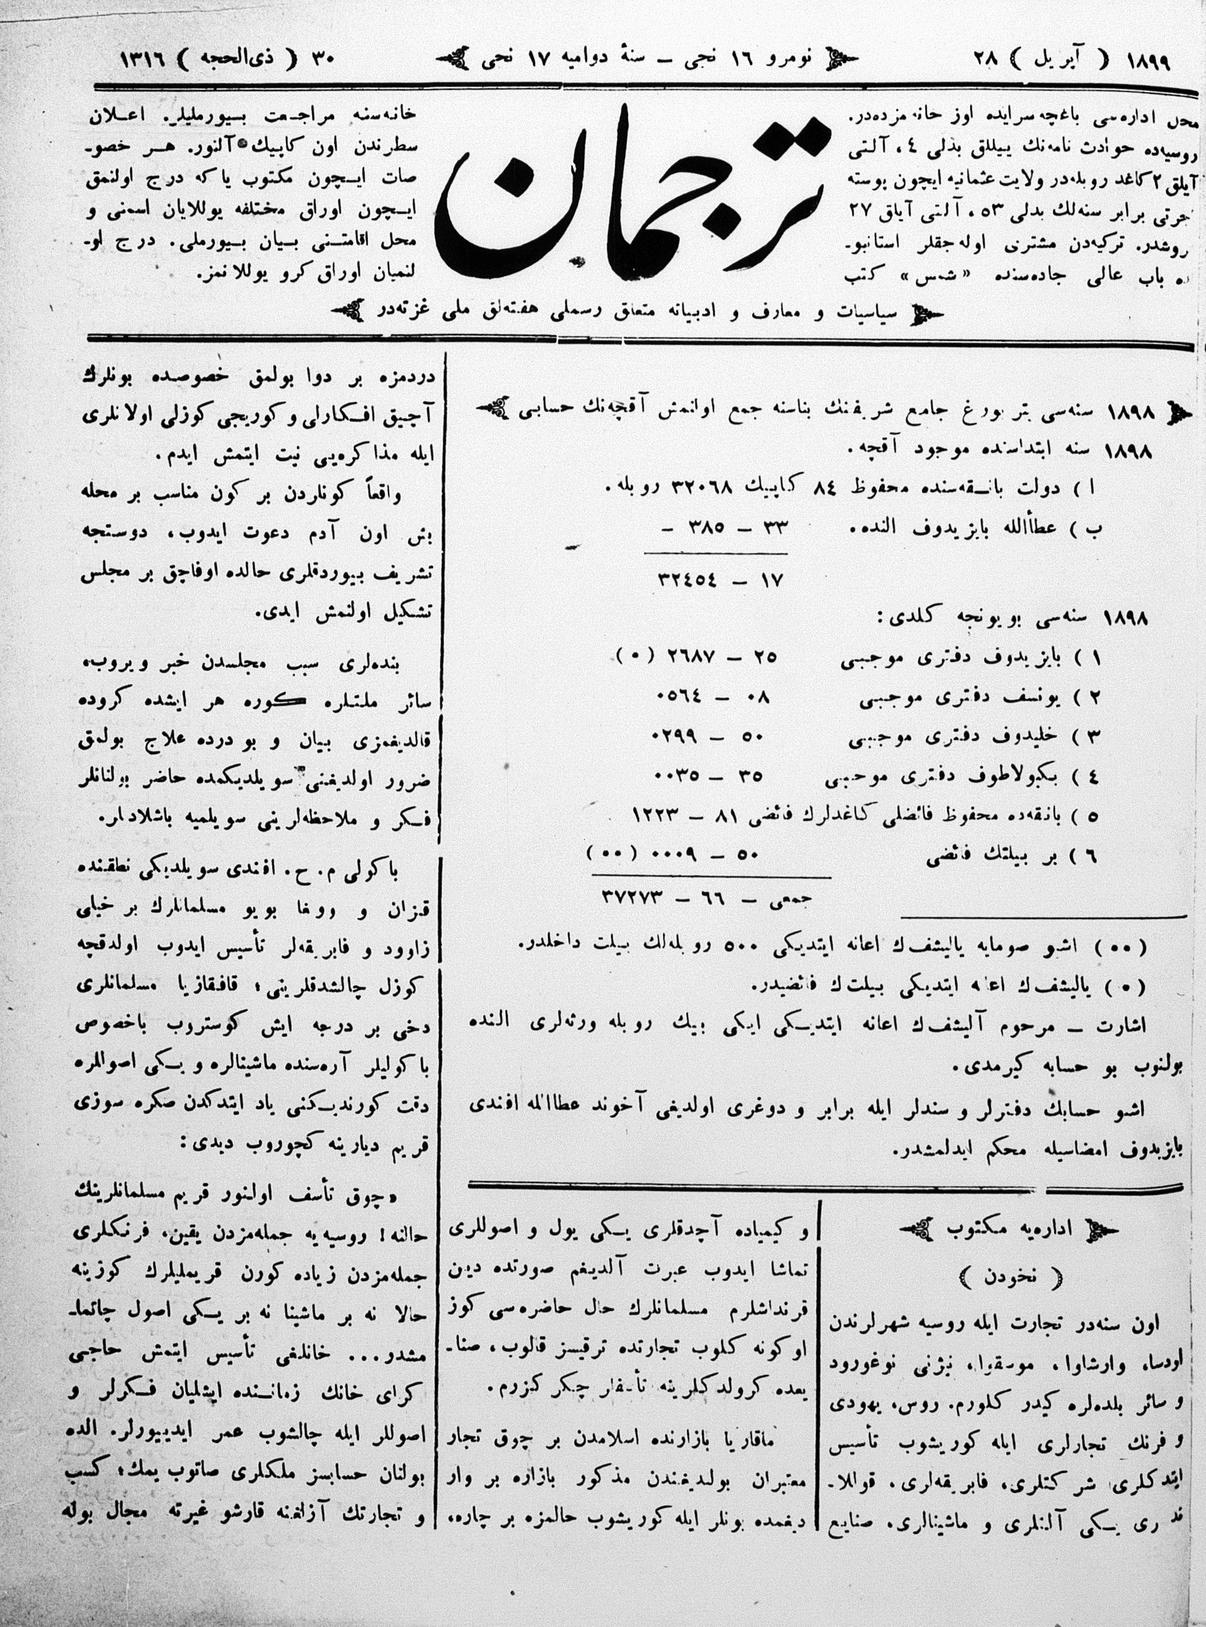 ١٨٩٩ ( آپریل ) ٢٨
نومرو ١٦ نجی ـ سنۀ دوامیه ١٧ نجی
٣٠ ( ذی‌الحجه ) ١٣١٦
محل اداره‌سی باغچه‌سرایده اوز خانه مزده‌در.
روسیه‌ده حوادث نامه‌نك ییللق بذلی ٤، آلتی
آیلق ٢ كاغد روبله‌در ولایت عثمانیه ایچون پوسته
اجرتی برابر سنه‌لك بدلی ٥٣، آلتی آیلق ٢٧
غروشدر. تركیه‌دن مشتری اوله‌جقلر استانبو-
لده باب عالی جاده‌سنده «شمس» كتب
ترجمان
خانه‌سنه مراجعت بیورملیلر. اعلان
سطرندن اون كاپیك آلنور. هر خصو-
صات ایچون مكتوب یاكه درج اولنمق
ایچون اوراق مختلفه یوللایان اسمنی و
محل اقامتنی بیان بیورملی. درج او-
لنمیان اوراق كرو یوللانمز.
سیاسیات و معارف و ادبیاته متعلق رسملی هفته‌لق ملی غزته‌در
١٨٩٨ سنه‌سی پتربورغ جامع شریفنك بناسنه جمع اولنمش آقچه‌نك حسابی
١٨٩٨ سنه ابتداسنده موجود آقچه.
ا ) دولت بانقه‌سنده محفوظ ٨٤ كاپیك ٣٢٠٦٨ روبله.
ب ) عطأالله بایزیدوف النده. ٣٣ ـ ٣٨٥ ـ
١٧ ـ ٣٢٤٥٤
١٨٩٨ سنه‌سی بویونجه كلدی:
١ ) بایزیدوف دفتری موجبی ٢٥ ـ ٢٦٨٧ (٠)
٢ ) یونسف دفتری موجبی ٠٨ ـ ٠٥٦٤
٣ ) خلیدوف دفتری موجبی ٥٠ ـ ٠٢٩٩
٤ ) بكبولاطوف دفتری موجبی ٣٥ ـ ٠٠٣٥
٥ ) بانقه‌ده محفوظ فائضلی كاغدلرك فائضی ٨١ ـ ١٢٢٣
٦ ) بر بیلتك فائضی ٥٠ ـ ٠٠٠٩ (٠٠)
جمعی ـ ٦٦ ـ ٣٧٢٧٣
(٠٠) اشبو صومایه یالیشف‌ك اعانه ایتدیكی ٥٠٠ روبله‌لك بیلت داخلدر.
(٠) یالیشف‌ك اعانه ایتدیكی بیلت‌ك فائضیدر.
اشارت ـ مرحوم آلیشف‌ك اعانه ایتدیكی ایكی بیك روبله ورثه‌لری النده
بولنوب بو حسابه كیرمدی.
اشبو حسابك دفترلر و سندلر ایله برابر و دوغری اولدیغی آخوند عطاالله افندی
بایزیدوف امضاسیله محكم ایدلمشدر.
اداره‌یه مكتوب
( نخودن )
اون سنه‌در تجارت ایله روسیه شهرلرندن
اودسا، وارشاوا، موسقوا، نیژنی نوغورود
و سائر بلده‌لره كیدر كلورم. روس، یهودی
و فرنك تجارلری ایله كوریشوب تأسیس
ایتدكلری شركتلری، فابریقه‌لری، قوللا-
ندقلری یكی آلتلری و ماشینالری، صنایع
و كیمیاده آچدقلری یكی یول و اصوللری
تماشا ایدوب عبرت آلدیغم صورتده دین
قرنداشلرم مسلمانلرك حال حاضره‌سی كوز
اوكونه كلوب تجارتده ترقیسز قالوب، صنا-
یعده كرولدكلرینه تأسفلر چكر كزرم.
ماقاریا بازارنده اسلامدن بر چوق تجار
معتبران بولدیغندن مذكور بازاره بر وار
دیغمده بونلر ایله كوریشوب حالمزه بر چاره،
دردمزه بر دوا بولمق خصوصده بونلرك
آچیق افكارلی و كوریجی كوزلی اولانلری
ایله مذاكره‌یی نیت ایتمش ایدم.
واقعاً كونلردن بر كون مناسب بر محله
بش اون آدم دعوت ایدوب، دوستجه
تشریف بیوردقلری حالده اوفاچق بر مجلس
تشكیل اولنمش ایدی.
بنده‌لری سبب مجلسدن خبر ویروب،
سائر ملتلره كوره هر ایشده كروده
قالدیغمزی بیان و بو درده علاج بولمق
ضرور اولدیغنی سویلدیكمده حاضر بولنانلر
فكر و ملاحظه‌لرینی سویلمیه باشلادیلر.
باكولی م. ح. افندی سویلدیكی نطقنده
قزان و وولغا بویو مسلمانلرك بر خیلی
زاوود و فابریقه‌لر تأسیس ایدوب اولدقچه
كوزل چالشدقلرینی؛ قافقازیا مسلمانلری
دخی بر درجه ایش كوستروب باخصوص
باكولیلر آره‌سنده ماشینالره و یكی اصوللره
دقت كورندیكنی یاد ایتدكدن صكره سوزی
قریم دیارینه كچوروب دیدی:
«چوق تأسف اولنور قریم مسلمانلرینك
حالنه! روسیه‌یه جمله‌مزدن یقین، فرنكلری
جمله‌مزدن زیاده كورن قریملیلرك كوزینه
حالا نه بر ماشینا نه بر یكی اصول چالنما-
مشدر... خانلغی تأسیس ایتمش حاجی
كرای خانك زماننده ایشلیان فكرلر و
اصوللر ایله چالشوب عمر ایدییورلر. الده
بولنان حسابسز ملكلری صاتوب یمك؛ كسب
و تجارتك آزلغنه قارشو غیرته مجال بوله